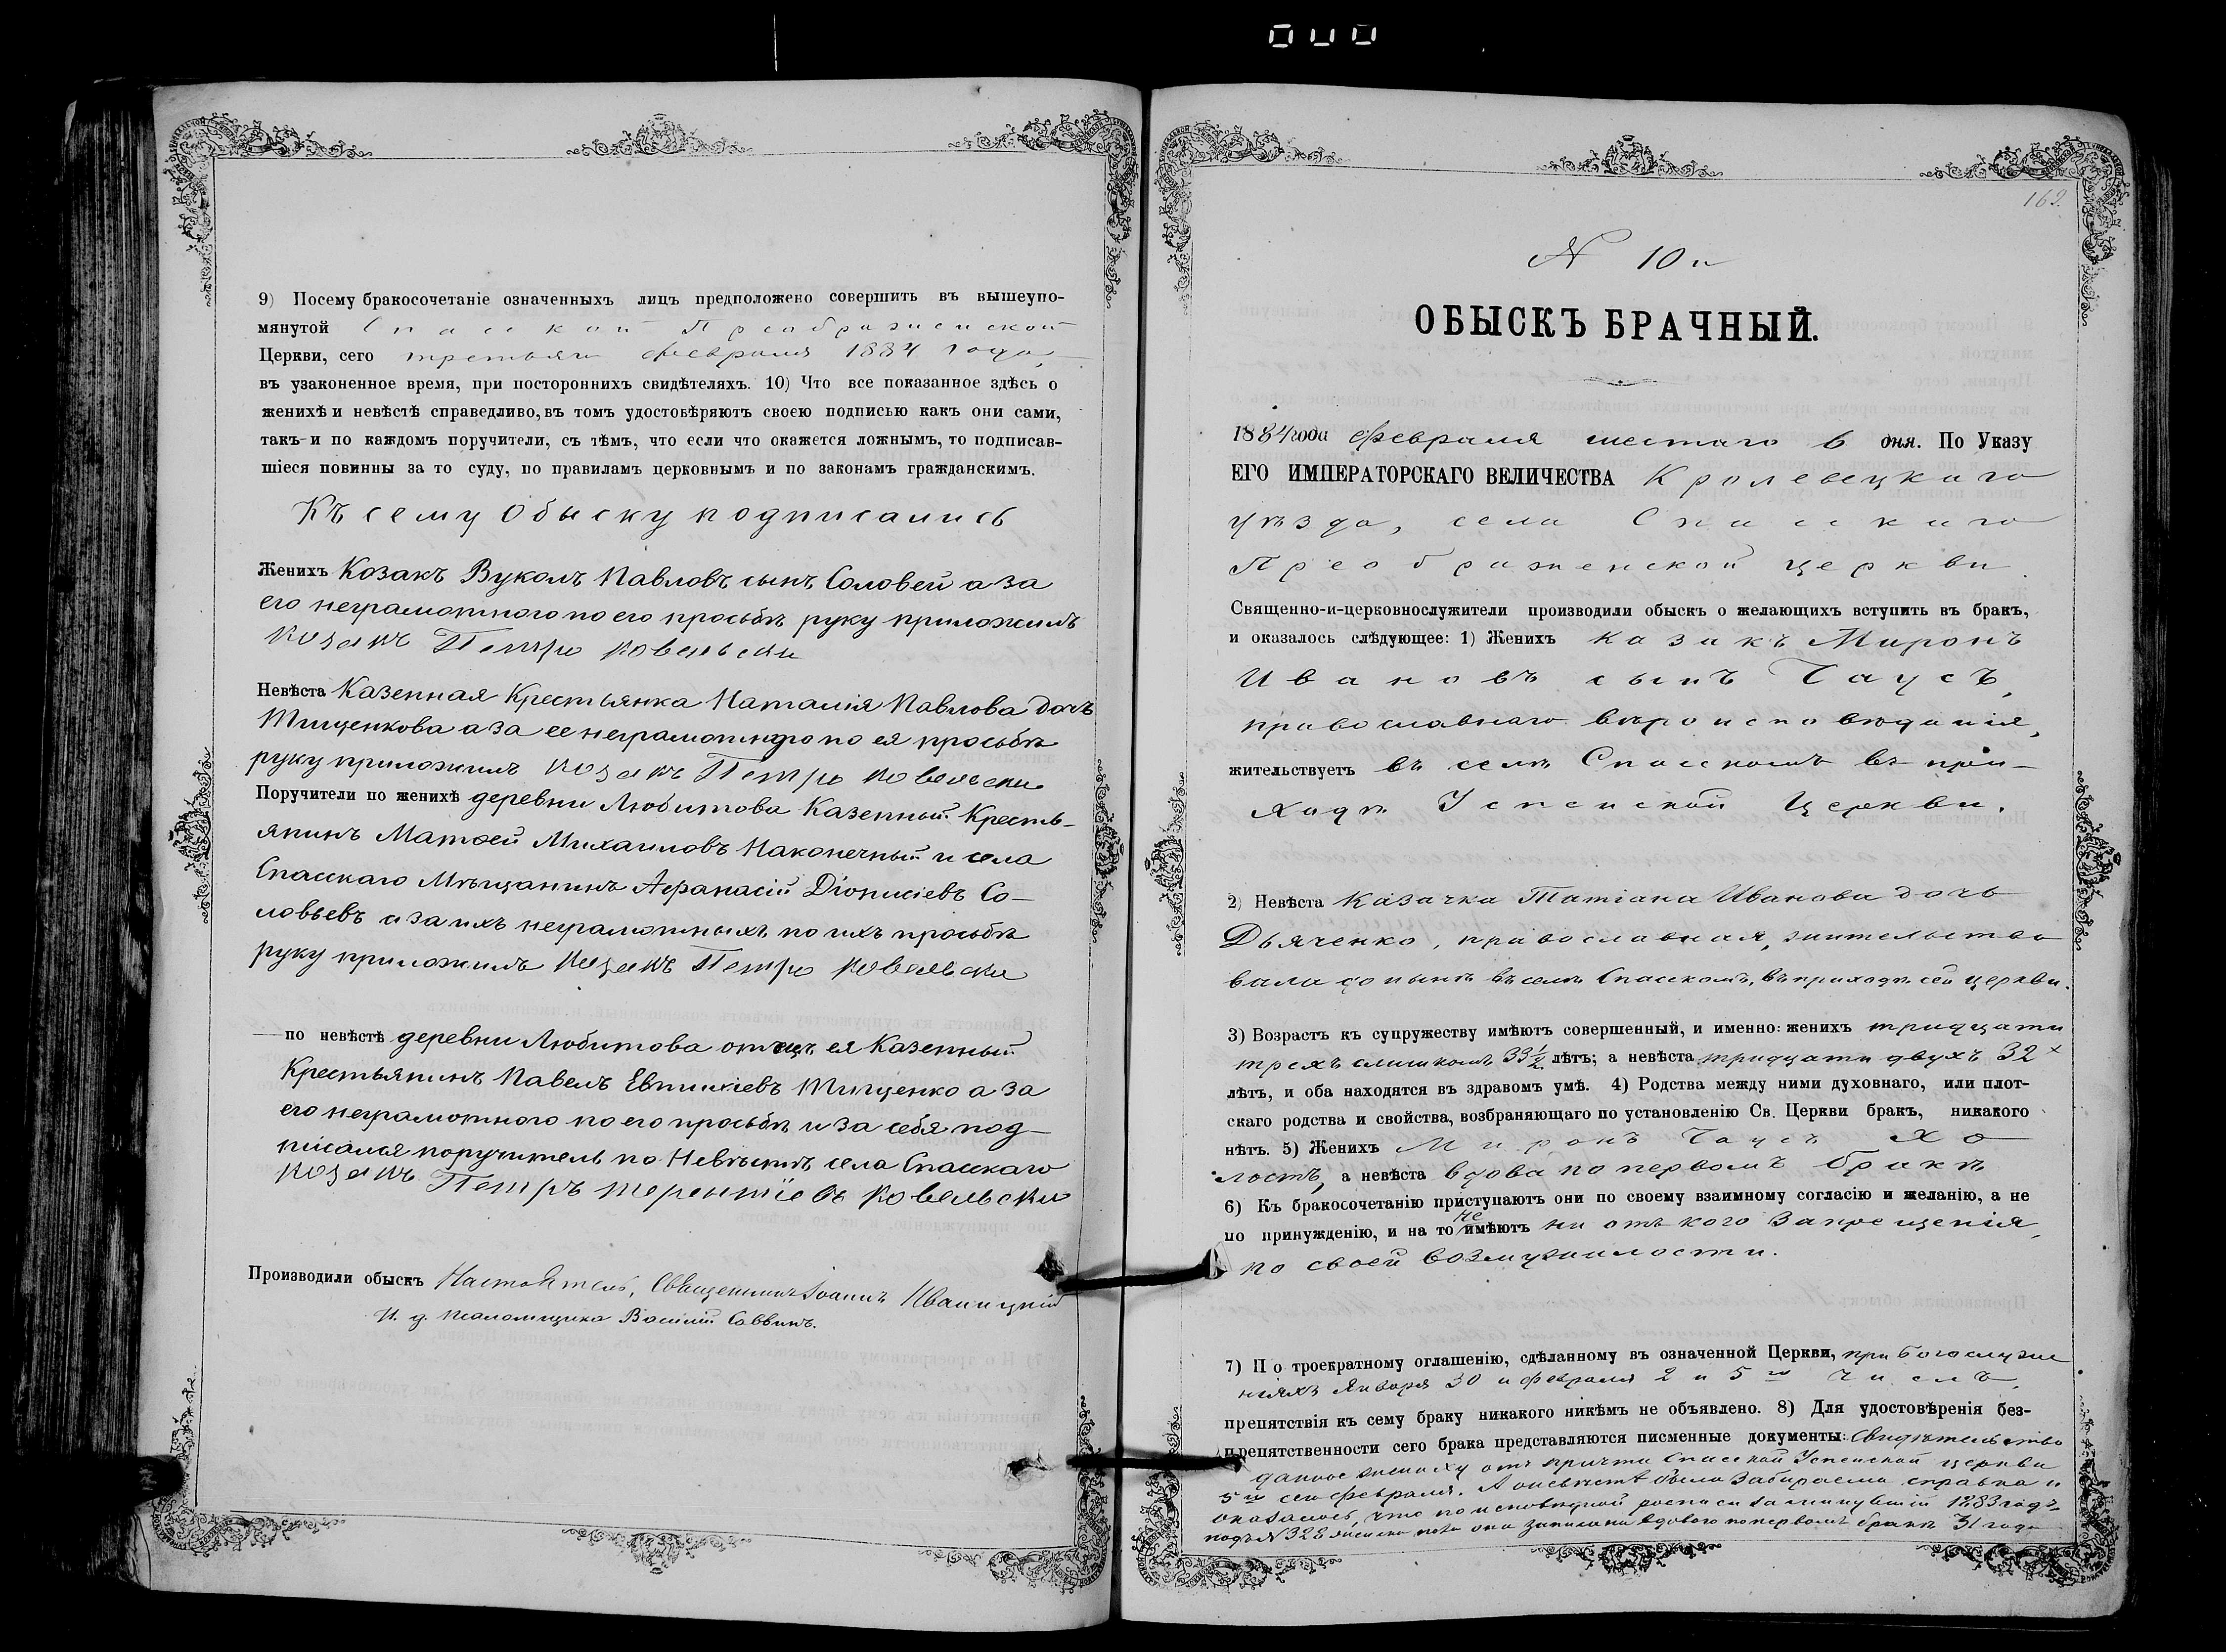 9) Посему бракосочетаніе означенныхъ лицъ предположено совершить въ вышеупо-
мянутой Спасской Преображенской
Церкви, сего третьяго февраля 1884 года,
въ узаконенное время, при постороннихъ свидѣтеляхъ. 10) Что все показанное здѣсь о
женихѣ и невѣстѣ справедливо, въ томъ удостовѣряютъ своею подписью какъ они сами,
такъ-и по каждомъ поручители, съ тѣмъ, что если что окажется ложнымъ, то подписав-
шіеся повинны за то суду, по правиламъ церковнымъ и по законамъ гражданскимъ.
Къ сему Обыску подписались
Женихъ Козакъ Вуколъ Павловъ сынъ Соловей а за
его неграмотного по его просьбѣ руку приложилъ
козакъ Петро Ковельски
Невѣста Казенная Крестьянка Наталія Павлова дочь
Тищенкова а за ее неграмотную по ея просьбѣ
руку приложилъ козакъ Петро Ковельски
Поручители по женихѣ деревни Любитова Казенный Кресть-
янинъ Матѳей Михаиловъ Наконечный и села
Спасскаго Мѣщанинъ Афанасій Діонисіевъ Со-
ловьевъ а за ихъ неграмотныхъ по ихъ просьбѣ
руку приложилъ козакъ Петро Ковельски
по невѣстѣ деревни Любитова отецъ ея Казенный
Крестьянинъ Павелъ Евтихіевъ Тищенко а за
его неграмотного по его просьбѣ и за себя под-
писался поручитель по Невѣстѣ села Спасскаго
козакъ Петръ терентіевъ Ковельски
Производили обыскъ Настоятель, Священникъ Іоаннъ Иваницкій
И. д. псаломщика Василій Саввинъ.
162.
N 10й
ОБЫСКЪ БРАЧНЫЙ.
1884 года февраля шестаго 6 дня. По Указу
ЕГО ИМПЕРАТОРСКАГО ВЕЛИЧЕСТВА Кролевецкаго
уѣзда, села Спасскаго
Преображенской церкви
Священно-и-церковнослужители производили обыскъ о желающихъ вступить въ бракъ,
и оказалось слѣдующее: 1) Женихъ казакъ Миронъ
Ивановъ сынъ Таусъ,
православнаго вѣроисповѣданія,
жительствуетъ въ селѣ Спасскомъ въ при-
ходѣ Успенской Церкви.
2) Невѣста Казачка Татіана Иванова дочь
Дьяченко, православная, жительство
вала до нынѣ въ селѣ Спасскомъ, въ приходѣ сей церкви.
3) Возрастъ къ супружеству имѣютъ совершенный, и именно: женихъ тридцати
трехъ слишкомъ 33½ лѣтъ; а невѣста тридцати двухъ 32х
лѣтъ, и оба находятся въ здравомъ умѣ. 4) Родства между ними духовнаго, или плот-
скаго родства и свойства, возбраняющаго по установленію Св. Церкви бракъ, никакого
нѣтъ. 5) Женихъ Миронъ Таусъ хо
лостъ, а невѣста вдова по первомъ бракѣ
6) Къ бракосочетанію приступаютъ они по своему взаимному согласію и желанію, а не
по принужденію, и на то не имѣютъ ни отъ кого запрещенія,
по своей возмужалости.
7) По троекратному оглашенію, сдѣланному въ означенной Церкви, при богослуже
ніяхъ Января 30 и февраля 2 и 5го чиселъ,
препятствія къ сему браку никакого никѣмъ не объявлено. 8) Для удостовѣренія без-
препятственности сего брака представляются писменные документы: Свидѣтельство
данное жениху отъ причта Спасской Успенской церкви
5го сего февраля. А о невѣстѣ была забираема справка и
оказалось, что по исповѣдной росписи за минувшій 1883 годъ,
подъ N 328 она записана вдовою по первомъ бракѣ 31 года